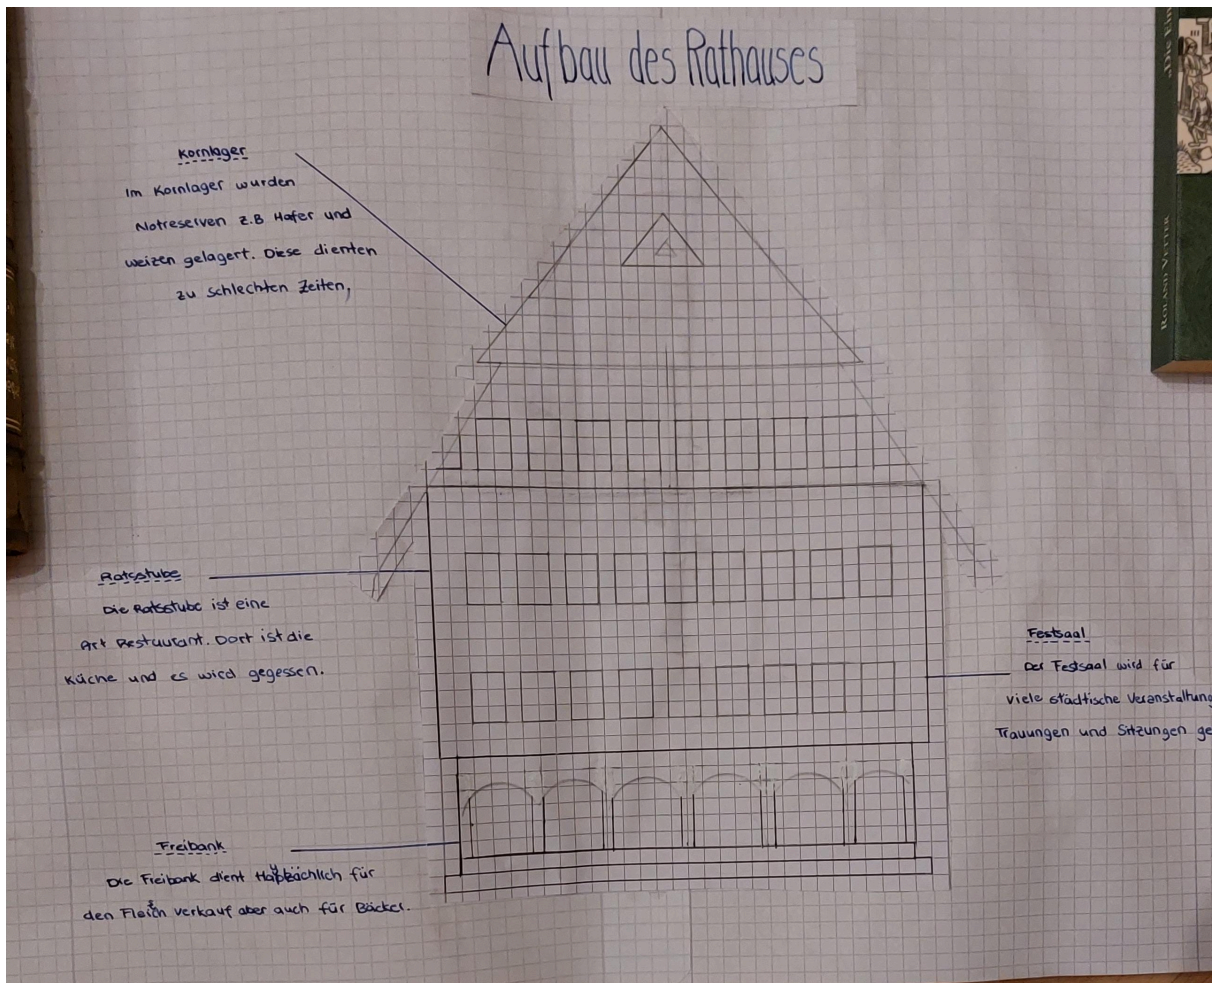 Aufbau des Rathauses
Kornlager
Im Kornlager wurden
Notreserven z.B Hafer und
weizen gelagert. Diese dienten
zu schlechten Zeiten,
Ratsstube
Die Ratsstube ist eine
Art Restaurant. Dort ist die
Küche und es wird gegessen.
Festsaal
Der Festsaal wird für
viele städtische Veranstaltung
Trauungen und Sitzungen ge
Freibank
Die Freibank dient für
den verkauf aber auch für Bäcker.
"Die Ein
ROLAND VETTER